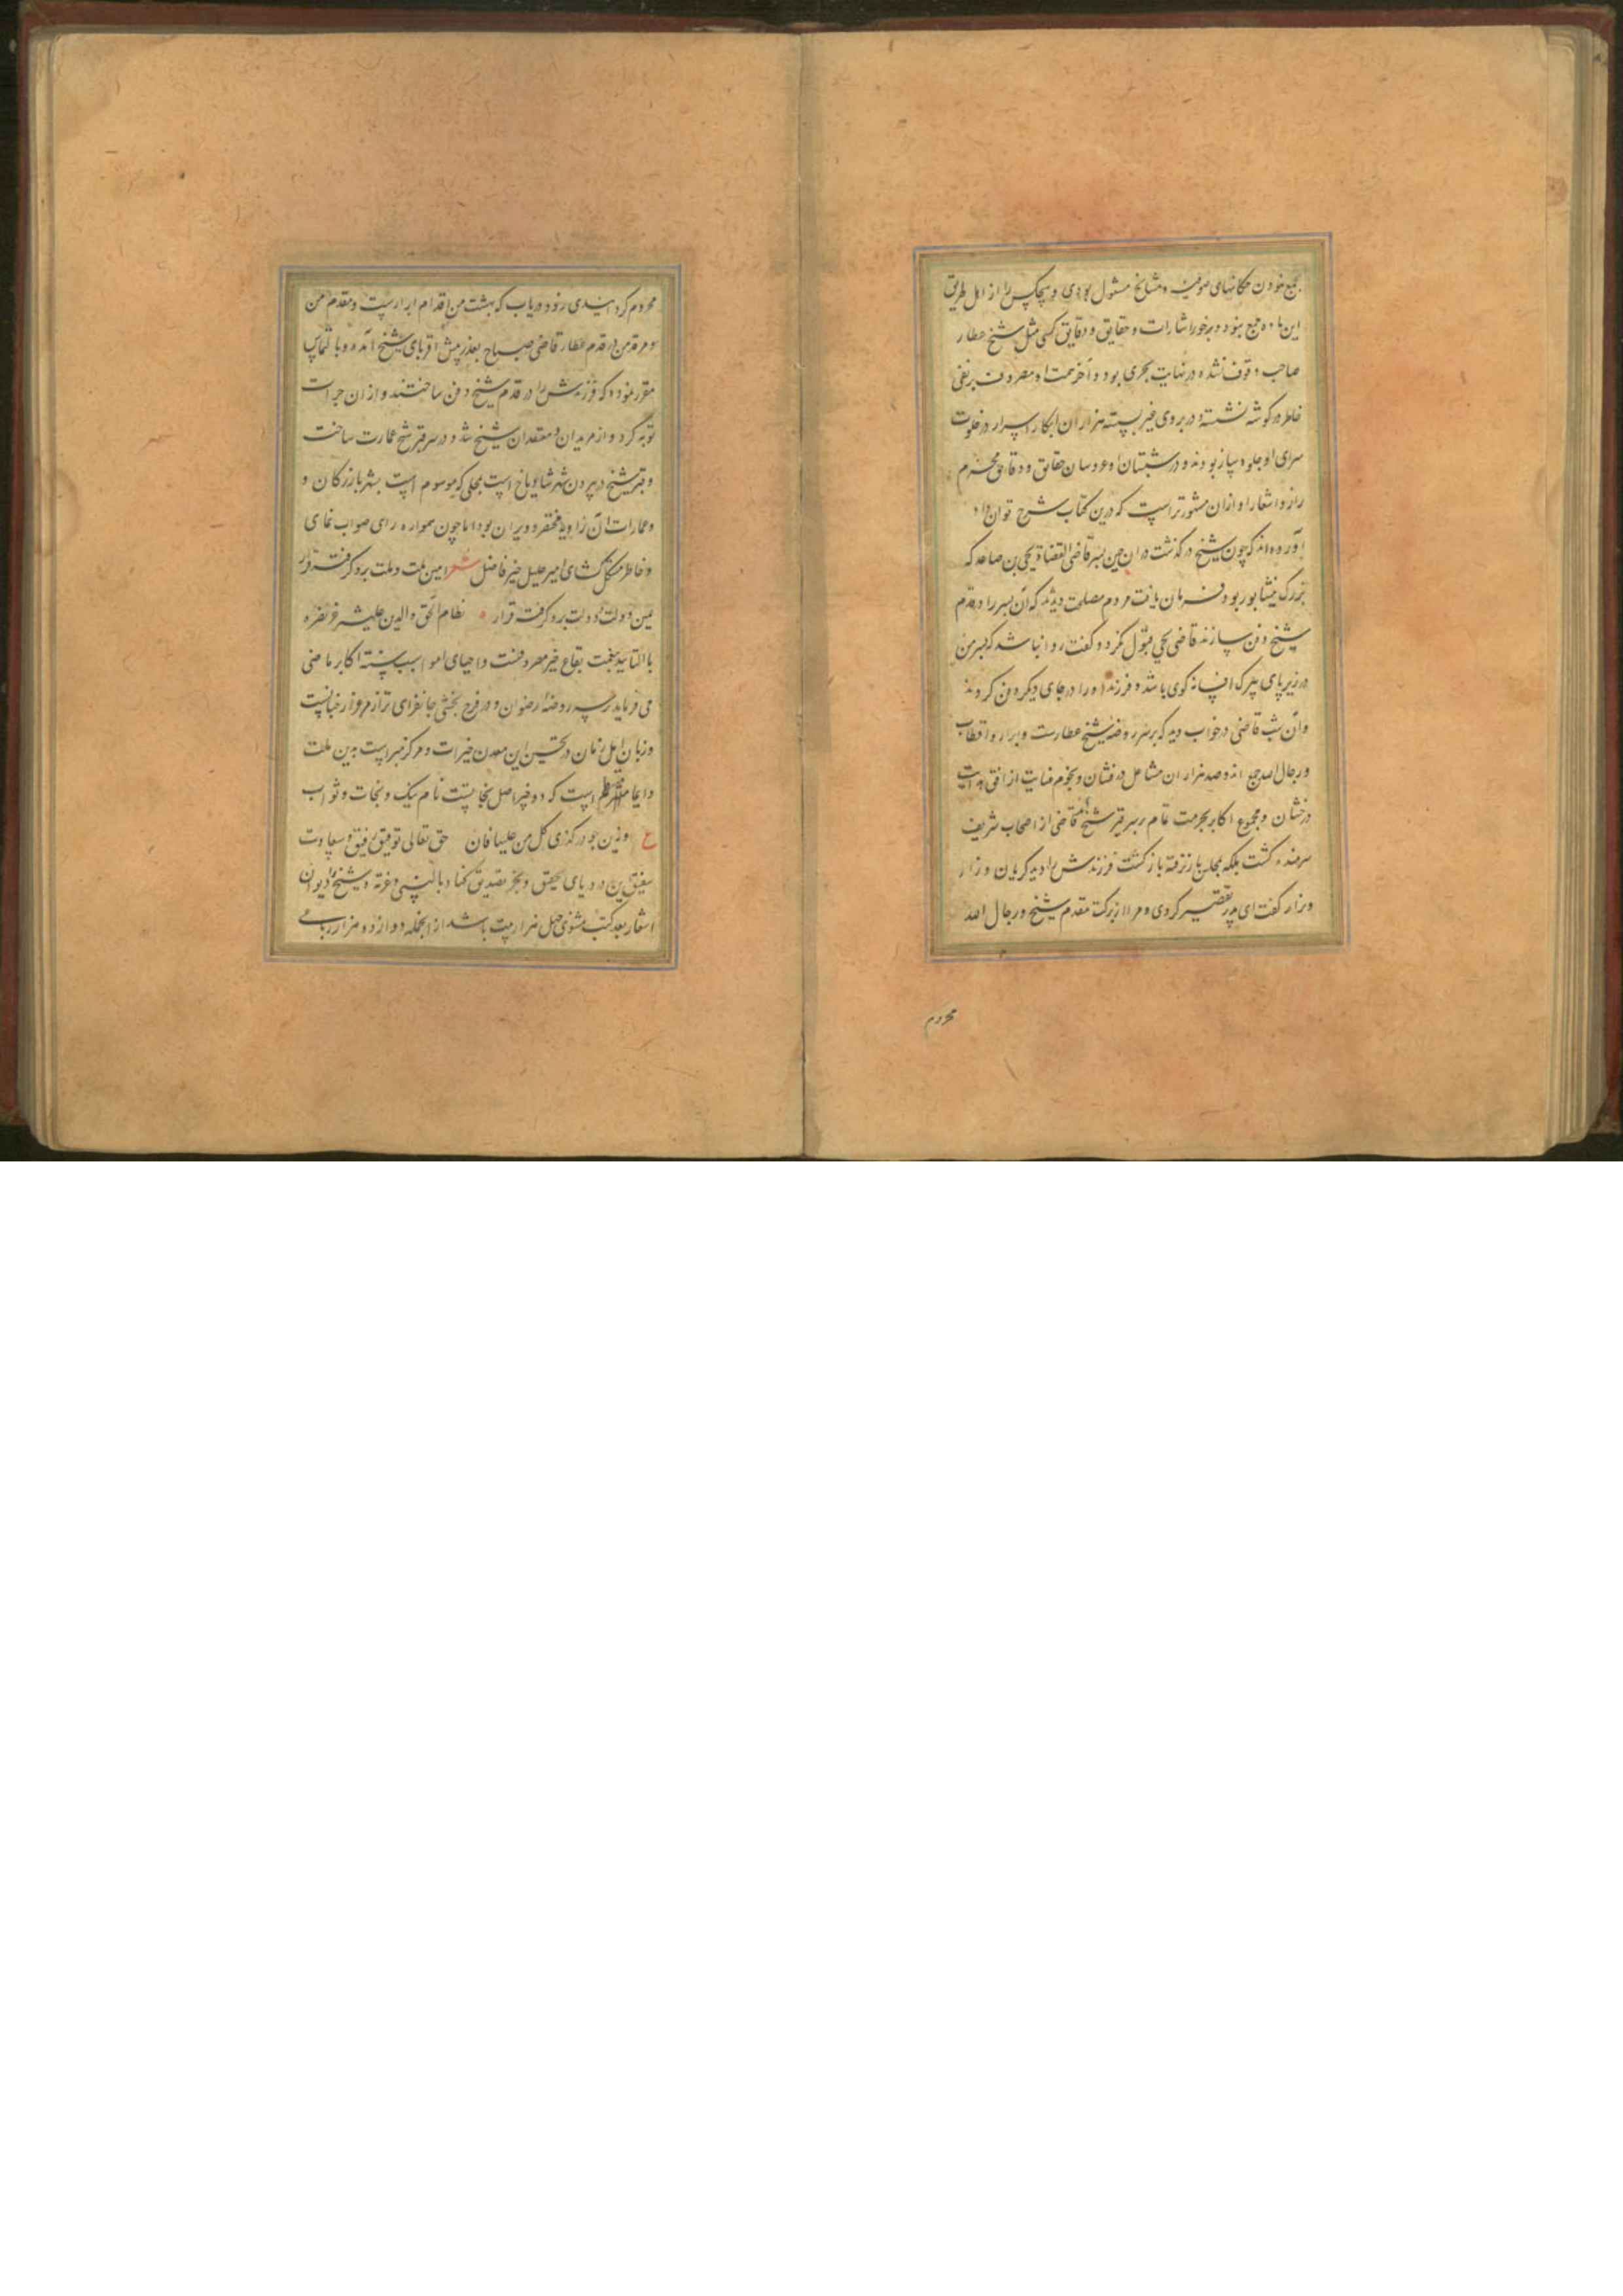 بجمع نمودن حکایتهای صوفیه و مشایخ مشغول بودی و هیچکس را از اهل طریق
این ماده جمع نبود و برخور اشارات و حقایق و دقایق کسی مثل شیخ عطار
صاحب وقوف نشده در نهایت بحری بود و آخر همت او مصروف بر نفی
خاطر در کوشه نشسته و در بروی غیر بسته هزاران ابکار اسرار در خلوت
سرای او جلوه ساز بودند و در شبستان او عروسان حقایق و دقایق محرم
راز و اشعار او ازان مشهورتر است که درین کتاب شرح توان داد
آورده اند که چون شیخ در کذشت دران حین پسر قاضی القضاة یحیی بن صاعد که
بزرک نیشابور بود فرمان یافت مردم مصلحت دیدند که آن پسر را در قدم
شیخ دفن سازند قاضی یحیی قبول نکرد و کفت روا نباشد که پسر من
در زیر پای پیرک افسانه کوی باشد و فرزند او را در جای دیکر دفن کردند
وآن شب قاضی در خواب دید که بر سر روضه شیخ عطارست و ابرار و اقطاب
و رجال الله جمع اند و صد هزاران مشاعل درفشان و نجوم عنایت از افق هدایت
درخشان و مجموع اکابر بحرمت تمام بر سر قبر شیخ قاضی از اصحاب شریف
شرمنده کشت بلکه مجال باز نرفته باز کشت فرزندش را دید کریان و زار
و نزار کفت ای پدر تقصیر کردی و مرا از برکت مقدم شیخ و رجال الله
محروم
محروم کردانیدی زود دریاب که بهشت من اقدام ابرارست و مقدم من
و مرقد من در قدم عطار قاضی صباح بعذر پیش اقربای شیخ آمده و با لتماس
مقرر نمود که فرزندش را در قدم شیخ دفن ساختند و از ان جرات
توبه کرد و از مریدان و معتقدان شیخ شد و در سر قبر شیخ عمارت ساخت
و قبر شیخ در بیرون شهر شادیاخ است بمحلی که موسوم است بشهر بازرکان و
و عمارات آن زاویه مختصر و ویران بود اما چون همواره رای صواب نمای
و خاطر مشکل کشای امیر جلیل خیر فاضل شعر امین ملت و ملت بدو کرفت قرار
یمین دولت و دولت بدو کرفت قرار نظام الحق والدین علیشیر عز نصره
با التایید بهمت بقاع خیر مصروفست و احیای اموات سنه اکابر ماضی
می فرماید بر سر روضه رضوان و در فرح بخشی جانفزای تر از مرغزار جنانست
و زبان اهل زمان در تحسین این معدن خیرات و مرکز مبراست بدین ملت
دایما است که دو خیر اصل نجابتست نام نیک و نجات و ثواب
ع وزین جو در کذری کل من علیها فان حق تعالی توفیق رفیق و سعادت
سفینه این دریای تحقیق و بحر تصدیق کناد بالنبی و عترته و شیخ را دیوان
اشعار بعد کتب مثنوی چهل هزار بیت باشد از انجمله دوازده هزار رباعی